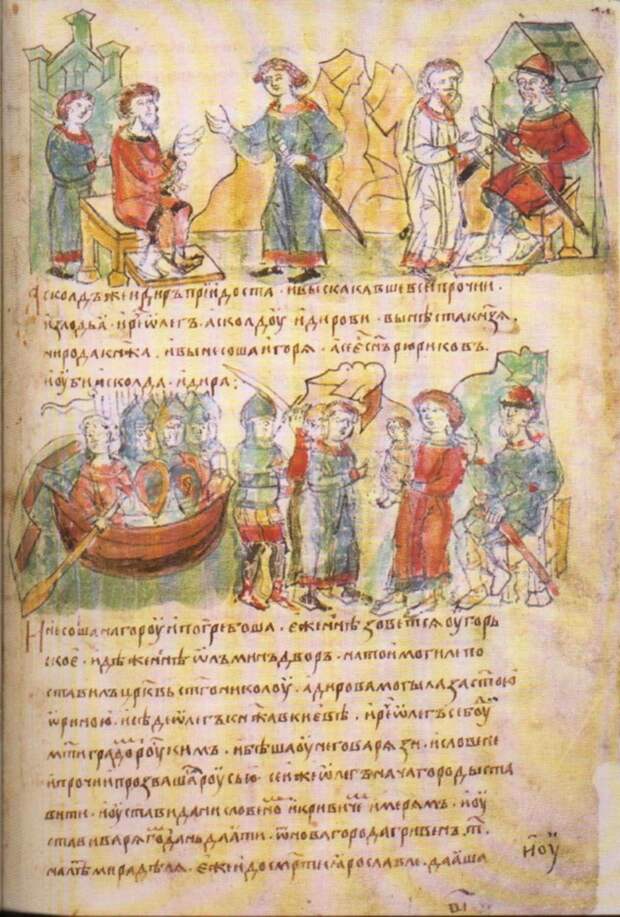 Асколдъ же и Диръ приидоста . и выскакавше вси прочии .
из лодьа . и рⷱ҇е ѡлегъ асколдоу и дирови . вы нѣста кнѕ҃я .
ни рода кн҃жа . и вынесоша игоря . а се єⷭ҇ сн҃ъ рюриковъ .
и оубиша асколда и дира :
И несоша на гороу и погребоша . еже нн҃ѣ зоветсѧ оугорь
ское . идѣже нн҃ѣ ѡлъминъ дворъ . на тои могиле по
ставилъ цр҃квь ст҃го николоу . а дирова могыла за ст҃ою
ѡриною . и сѣде ѡлегъ кнѧжа в киевѣ . и рⷱ҇е ѡлегъ се боуⷣ
мт҃и градоⷨ роуⷭ҇скимъ . и бѣша оу него варязи . и словене
и прочии прозвашаⷭ҇ роусью . сеи же ѡлегъ нача городы ста
вити . и оустави дани словеноⷨ и кривичеⷨ и мерямъ . и оу
стави варягоⷨ дань даꙗти . ѿ новагорода гривенъ . т҃ .
на лѣⷮ мира дѣля . еже и до смерти ꙗрославлѧ даꙗша